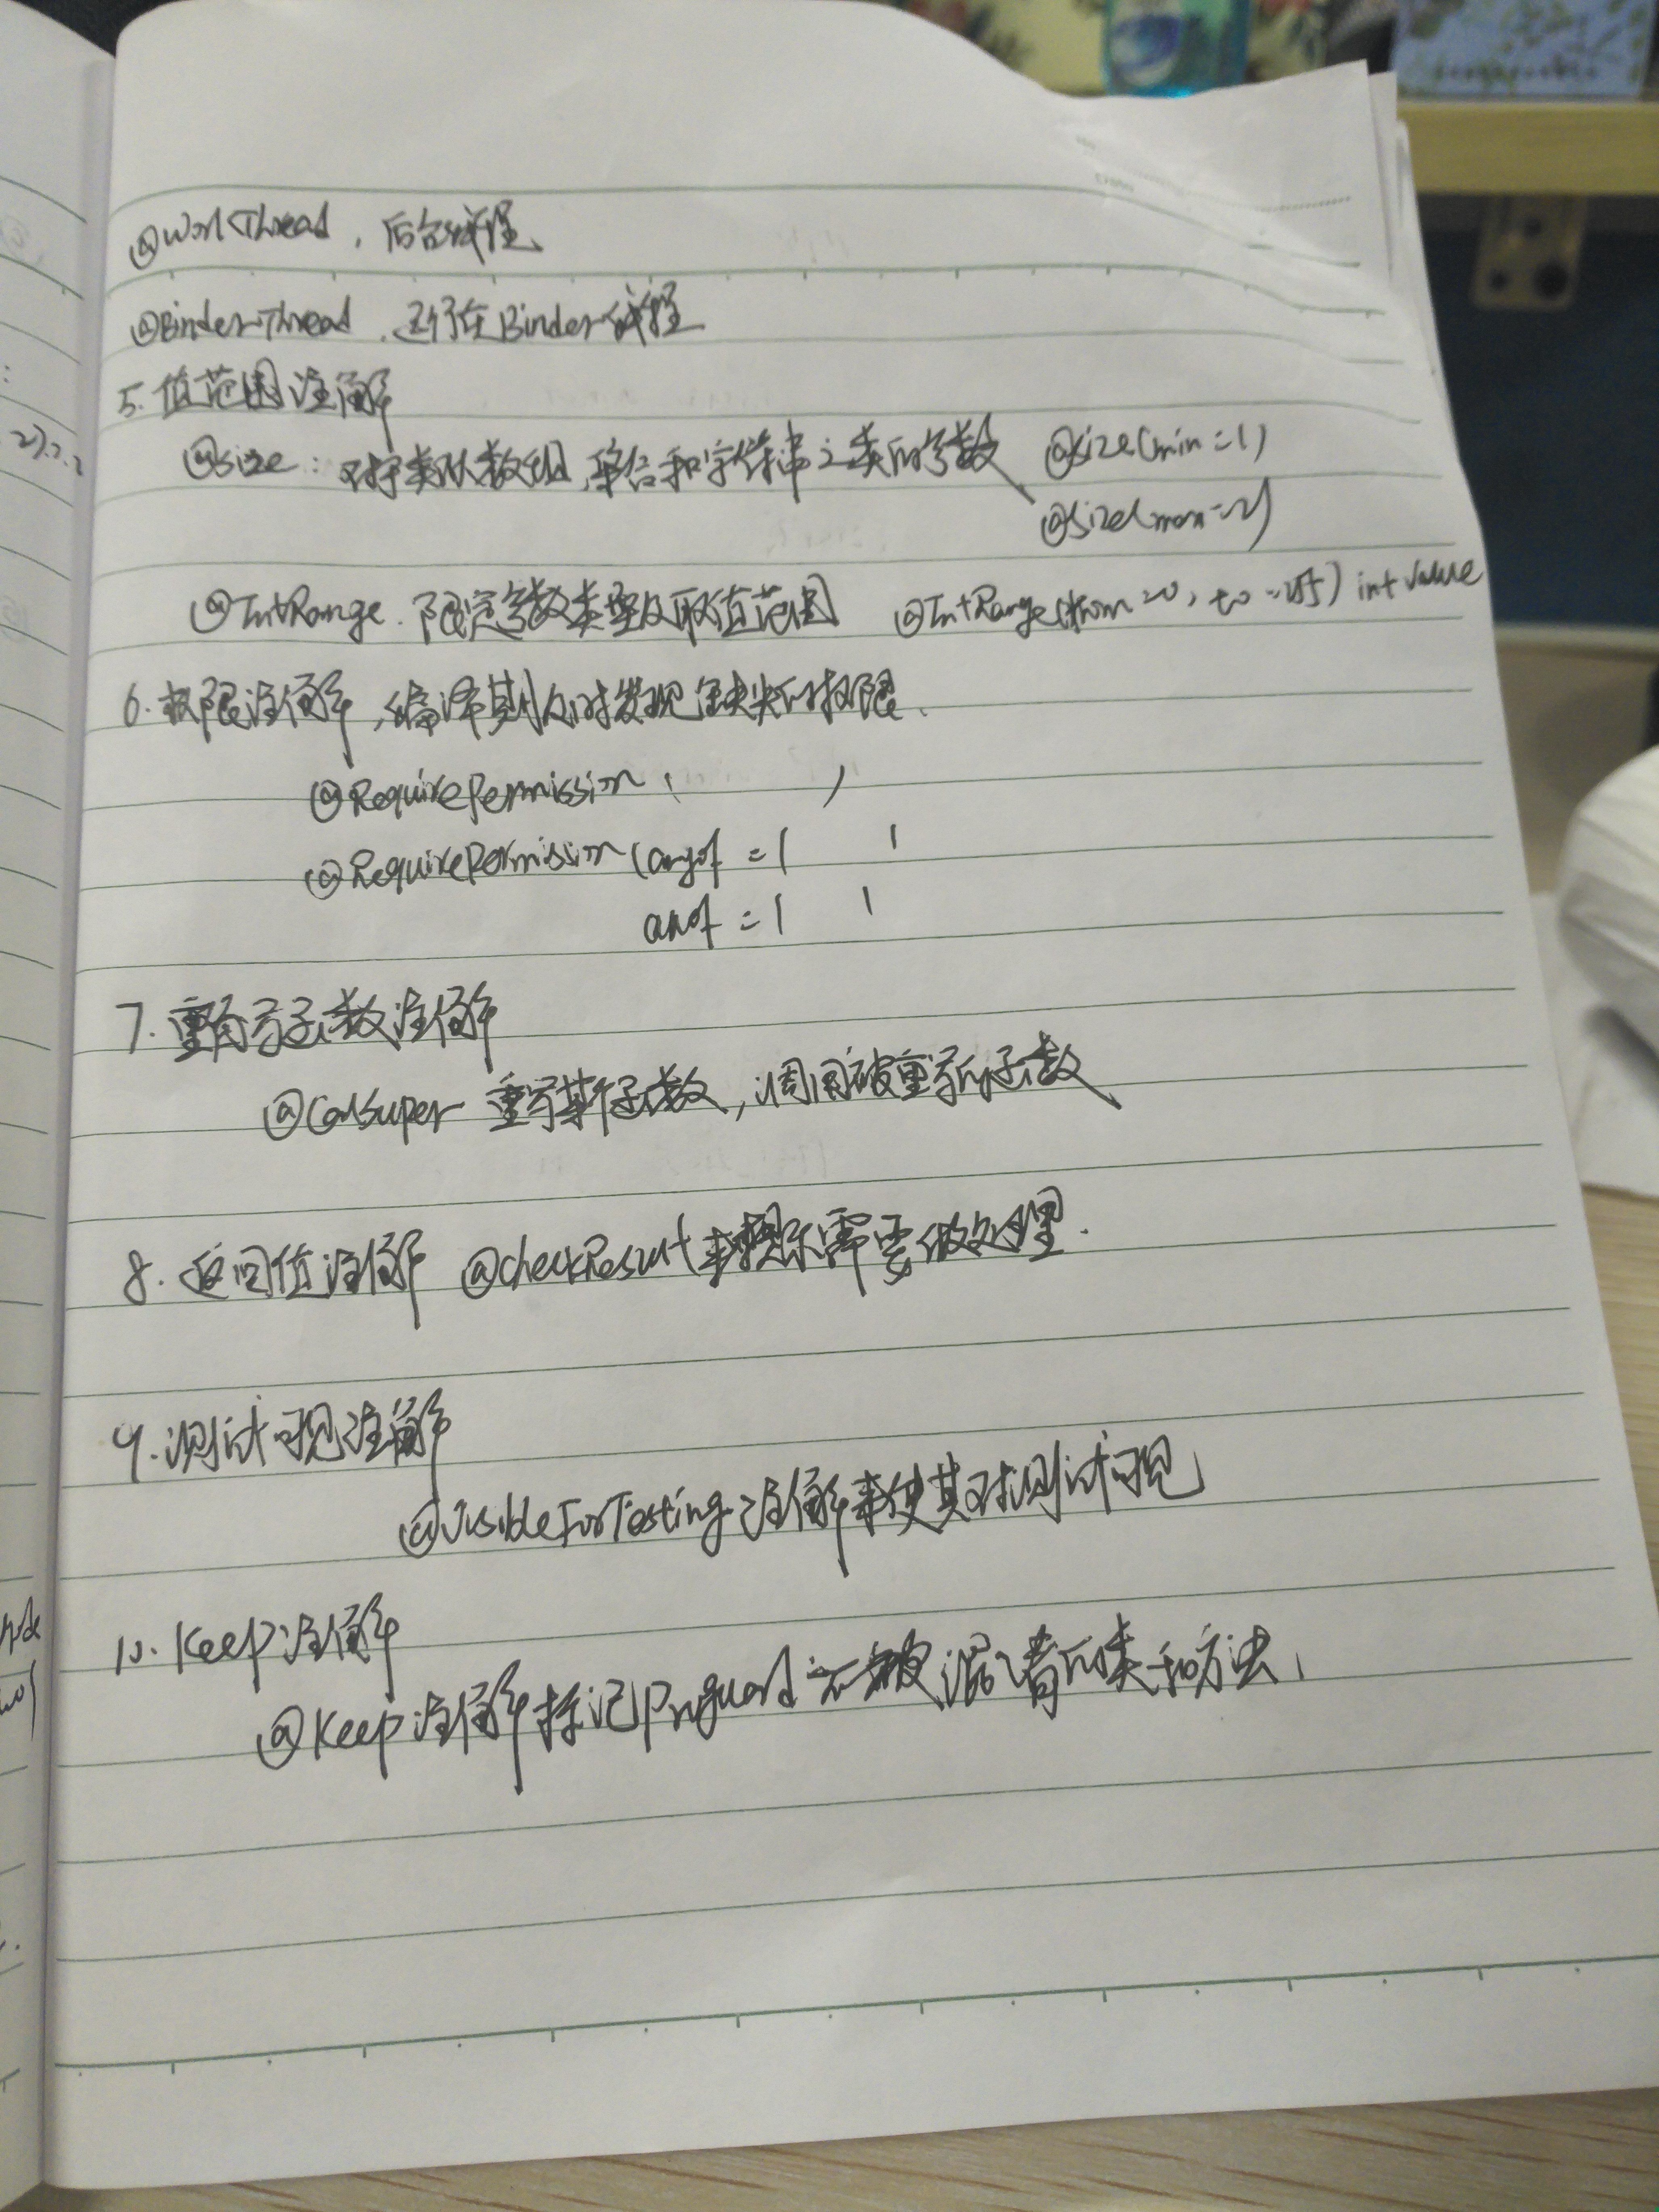 @WorkThread, 后台线程
@BinderThread, 运行在Binder线程
5. 值范围注解
@size: 对于类似数组,集合和字符串之类的参数 @size(min=1)
@size(max=2)
@IntRange. 限定参数类型及取值范围 @IntRange(from=0, to=255) int value
6. 权限注解,编译期及时发现缺失的权限.
@RequirePermission ( )
@RequirePermission (anyof = {
= {
7. 重写函数注解
@CallSuper 重写某个函数,调用被重写的函数
8. 返回值注解 @checkResult来提示需要做处理.
9. 测试可见注解
@VisibleForTesting注解来使其对测试可见
10. Keep注解
@Keep注解标记Proguard 不被混淆的类和方法,